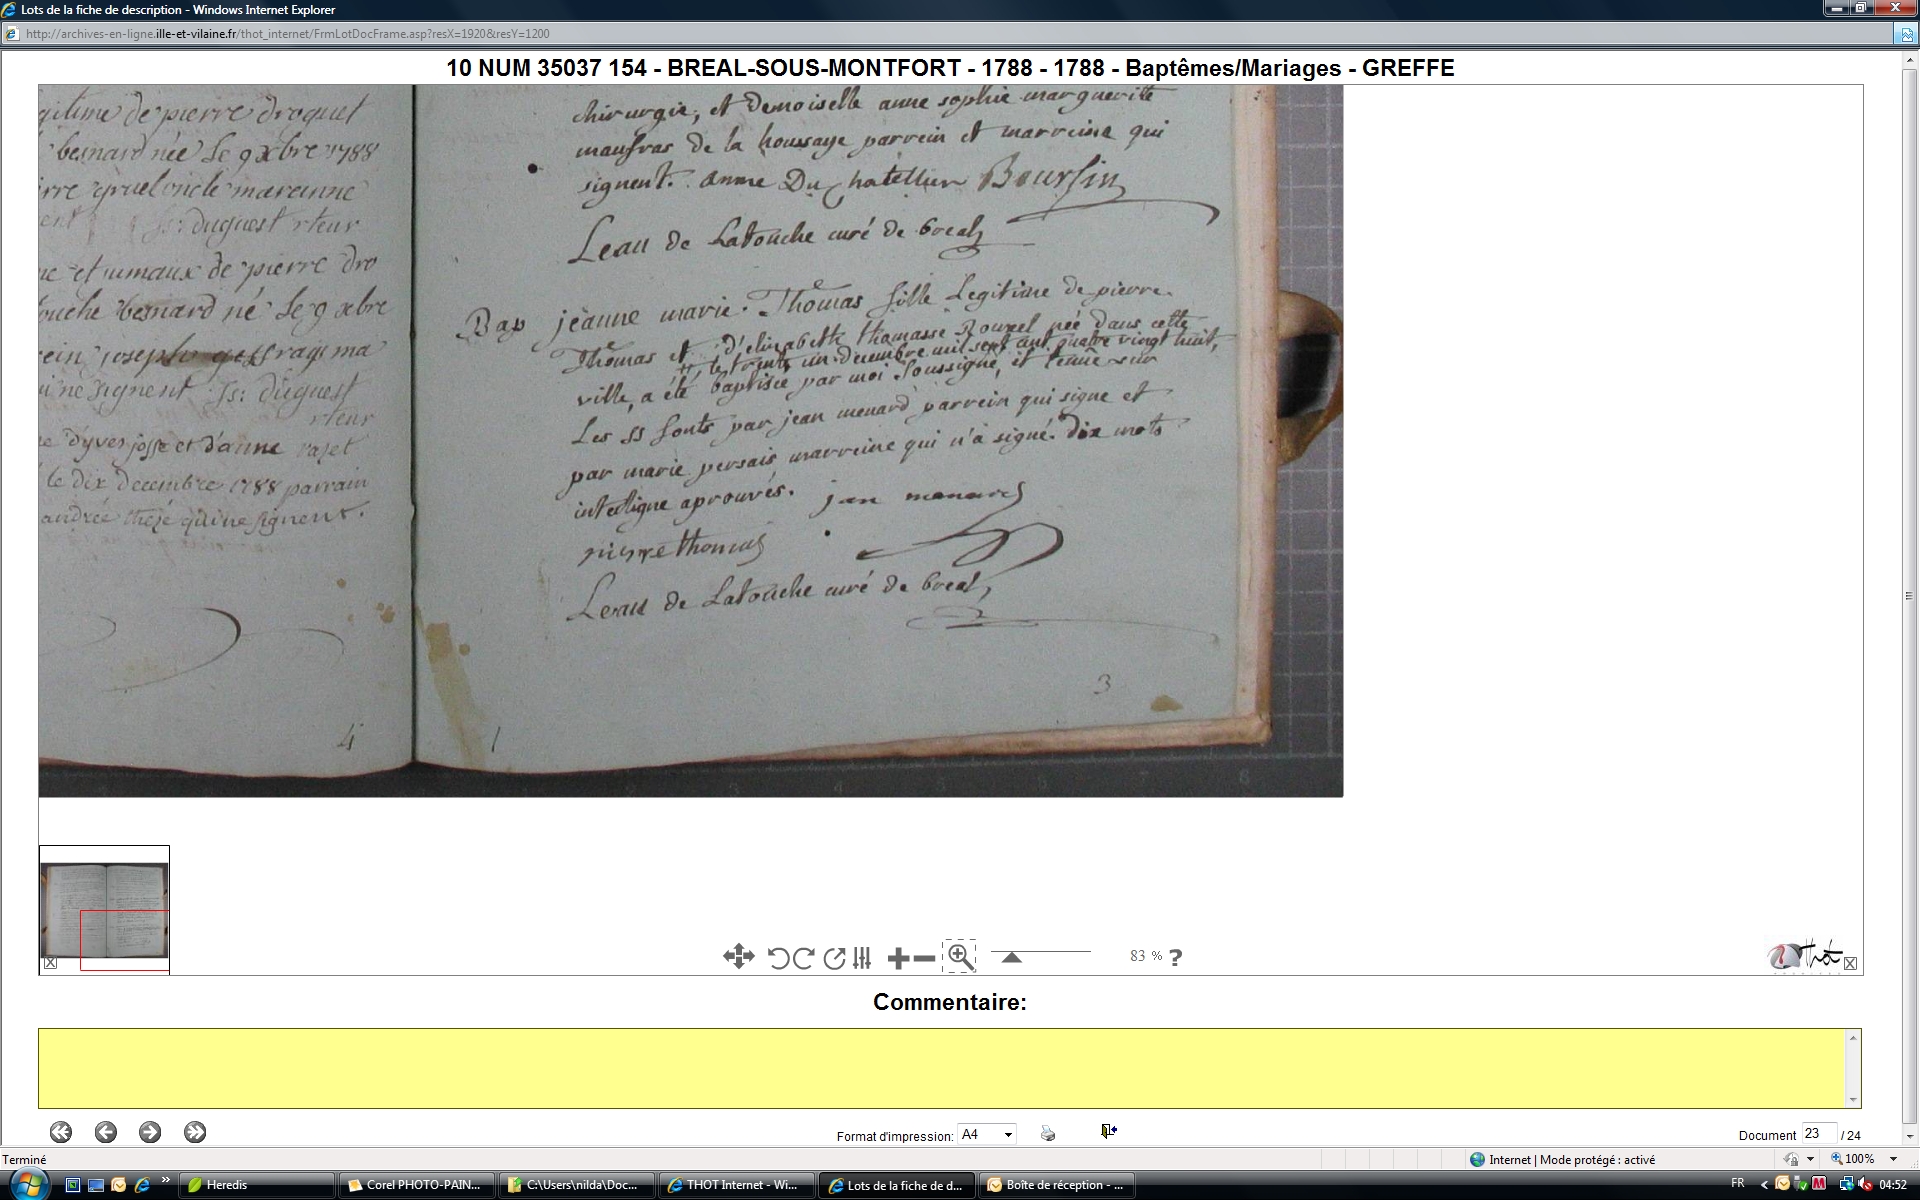 Lots de la fiche de description - Windows Internet Explorer
http://archives-en-ligne.ille-et-vilaine.fr/thot_internet/FrmLotDocFrame.asp?resX=1920&resY=1200
10 NUM 35037 154 - BREAL-SOUS-MONTFORT - 1788 - 1788 - Baptêmes/Mariages - GREFFE
gitime de pierre droguet
besnard née le 9 xbre 1788
oncle mareinne
duguest rteur
et jumaux de pierre dro
ouche besnard né le 9 xbre
ein joseph ma
ne signent duguest
rteur
d'yves josse et d'anne
le dix decembre 1788 parrain
andrée qui ne signent.
4
chirurgie, et demoiselle anne sophie marguerite
maufras de la houssaye parrein et marreine qui
signent. anne Du chatellier Boursin
Leau de Latouche curé de breal
Bap jeanne marie Thomas fille Legitime de pierre
Thomas et d'elizabeth thomasse Rouxel née dans cette
le trente un decembre mil sept cent quatre vingt huit,
ville, a été baptisée par moi soussigné, et tenüe sur
Les SS fonts par jean menard parrein qui signe et
par marie persais marreine qui n'a signé. dix mots
interligne aprouvés. jan menard
pierre thomas
Leau de Latouche curé de breal
3
83 % ?
Thot
Commentaire:
Format d'impression: A4
Document 23 / 24
Terminé
Internet | Mode protégé : activé
100%
Heredis
Corel PHOTO-PAIN...
C:\Users\nilda\Doc...
THOT Internet - Wi...
Lots de la fiche de d...
Boîte de réception - ...
FR
04:52